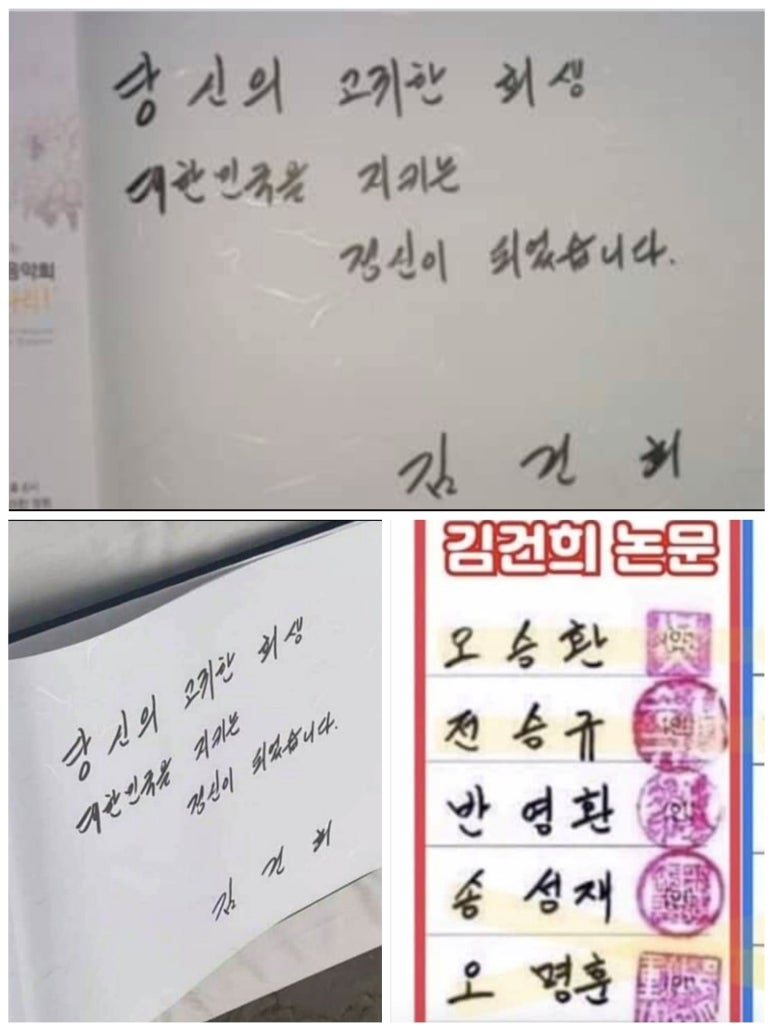 당신의 고귀한 희생
대한민국을 지키는
정신이 되었습니다.
김 건 희
음악회
당신의 고귀한 희생
대한민국을 지키는
정신이 되었습니다.
김 건 희
김건희 논문
오 승 환
전 승 규
반 영 환
송 성 재
오 명 훈